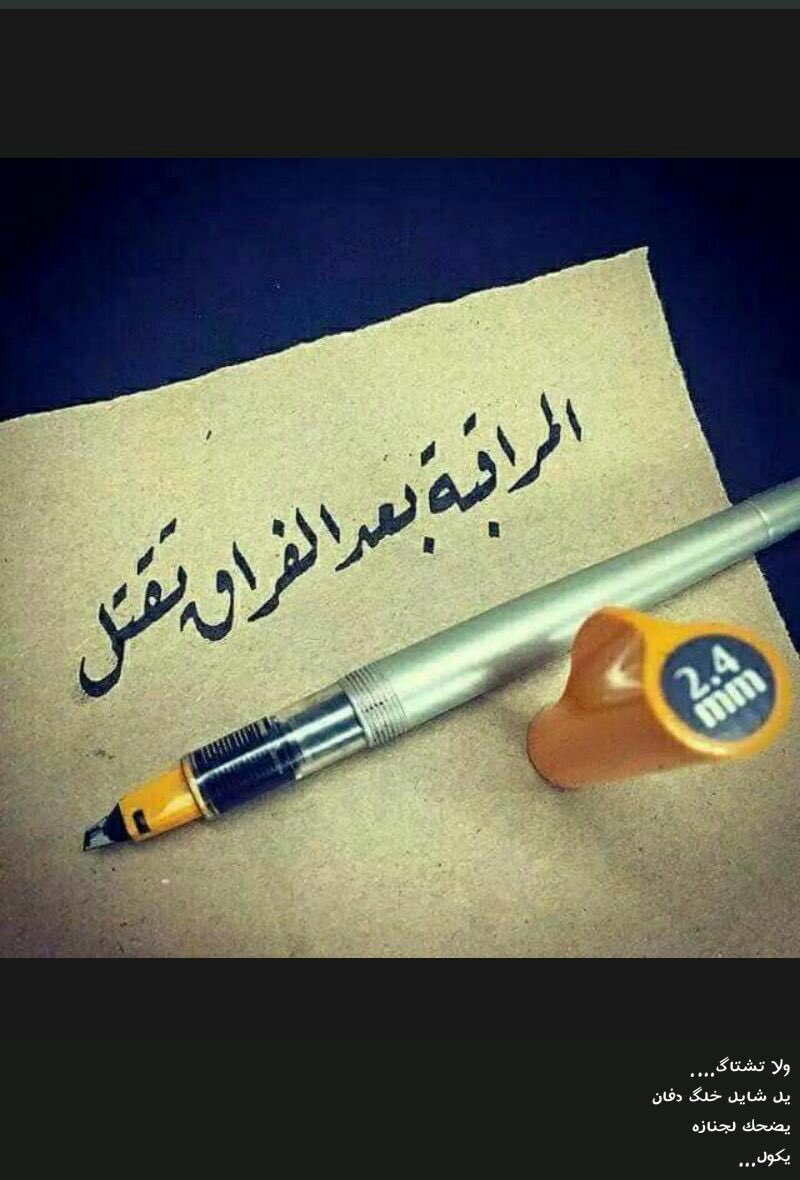 المراقبة بعد الفراق تقتل
2.4
mm
ولا تشتاگ....
يل شايل خلگ دفان
يضحك لجنازه
يكول...